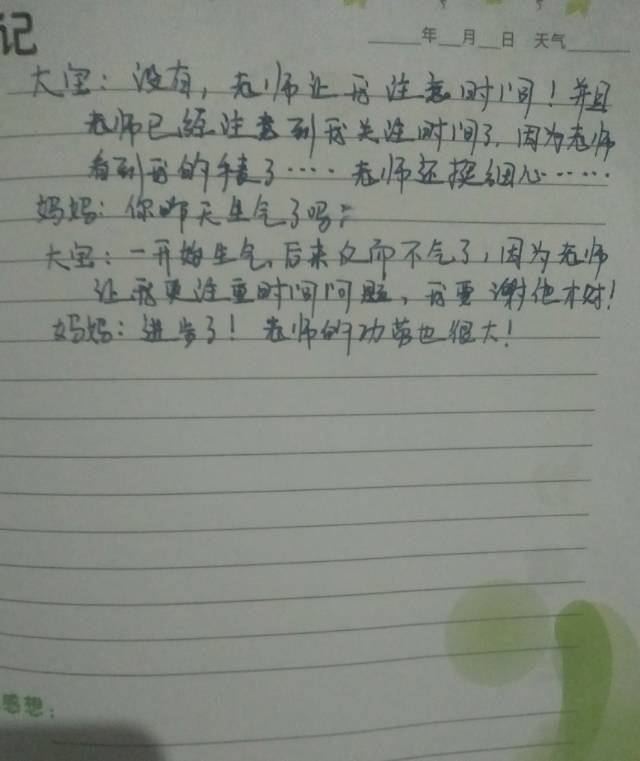 记
____年__月__日 天气____
大宝：没有，老师让我注意时间！并且
老师已经注意到我关注时间了，因为老师
看到我的手表了……老师还挺细心……
妈妈：你昨天生气了吗？
大宝：一开始生气，后来反而不气了，因为老师
让我更注重时间问题，我要谢他才对！
妈妈：进步了！老师的功劳也很大！
感想：